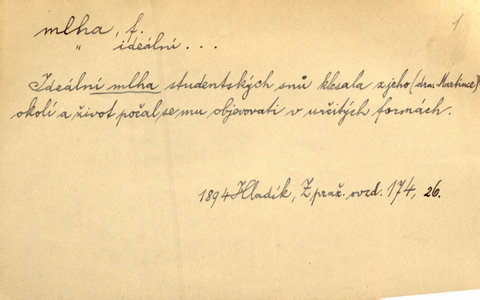 mlha, f.
1
" ideální . . .
Ideální mlha studentských snů klesala z jeho (dra. Martince)
okolí a život počal se mu objevovati v určitých formách.
1894 Hladík, Z praž. ovzd. 174, 26.